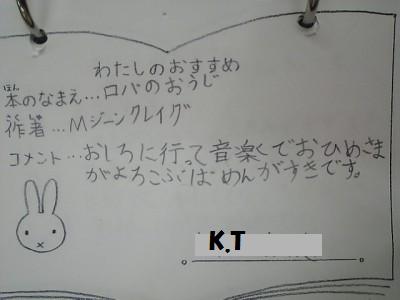 わたしのおすすめ
ほん
本のなまえ…ロバのおうじ
作著…Mジーンクレイグ
コメント…おしろに行って音楽でおひめさま
がよろこぶばめんがすきです。
K.T